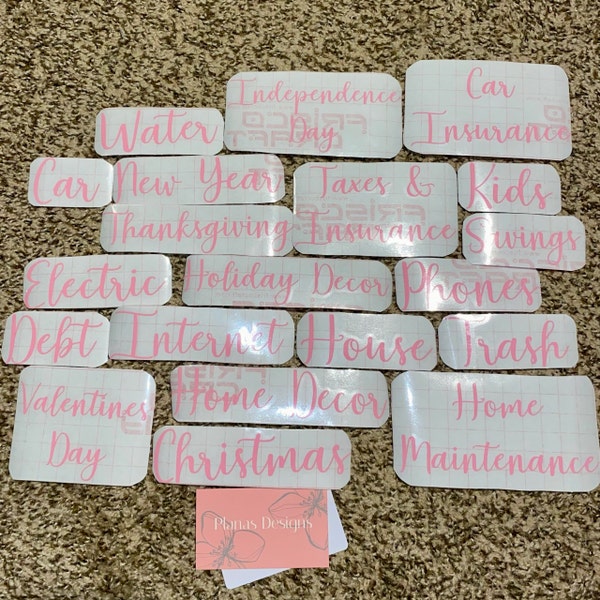 Independence
Day
Car
Insurance
Water
Car
New Year
Taxes &
Insurance
Kids
Thanksgiving
Savings
Electric
Holiday Decor
Phones
Debt
Internet
House
Trash
Valentines
Day
Home Decor
Home
Maintenance
Christmas
Planas Designs